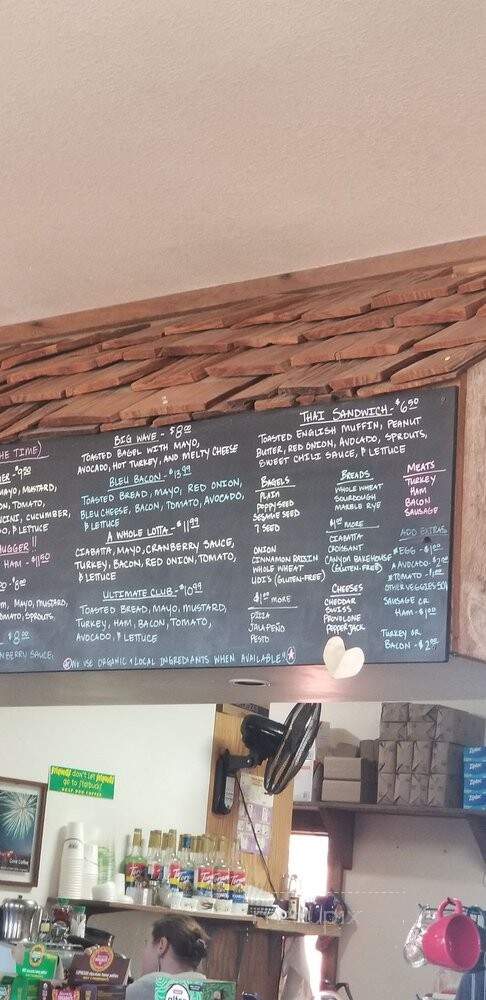 HE TIME)
$9.00
MAYO, MUSTARD,
TOMATO,
CUCUMBER,
& LETTUCE
HAM - $11.50
$8.00
MAYO, MUSTARD,
TOMATO, SPROUTS,
$8.00
NBERRY SAUCE,
BIG WAVE - $8.00
TOASTED BAGEL WITH MAYO,
AVOCADO, HOT TURKEY, AND MELTY CHEESE
BLEU BACON - $13.99
TOASTED BREAD, MAYO, RED ONION,
BLEU CHEESE, BACON, TOMATO, AVOCADO,
& LETTUCE
A WHOLE LOTTA - $11.99
CIABATTA, MAYO, CRANBERRY SAUCE,
TURKEY, BACON, RED ONION, TOMATO,
& LETTUCE
ULTIMATE CLUB - $10.99
TOASTED BREAD, MAYO, MUSTARD,
TURKEY, HAM, BACON, TOMATO,
AVOCADO, & LETTUCE
WE USE ORGANIC & LOCAL INGREDIANTS WHEN AVAILABLE!!
THAI SANDWICH - $6.50
TOASTED ENGLISH MUFFIN, PEANUT
BUTTER, RED ONION, AVOCADO, SPROUTS,
SWEET CHILI SAUCE, & LETTUCE
BAGELS
PLAIN
POPPY SEED
SESAME SEED
7 SEED
ONION
CINNAMON RAISIN
WHOLE WHEAT
UDI'S (GLUTEN-FREE)
$1.00 MORE
PIZZA
JALAPEÑO
PESTO
BREADS
WHOLE WHEAT
SOURDOUGH
MARBLE RYE
$1.00 MORE
CIABATTA
CROISSANT
CANYON BAKEHOUSE
(GLUTEN-FREE)
CHEESES
CHEDDAR
SWISS
PROVOLONE
PEPPER JACK
MEATS
TURKEY
HAM
BACON
SAUSAGE
ADD EXTRAS
EGG - $1.00
AVOCADO - $2.00
TOMATO - $1.00
OTHER VEGGIES 50¢
SAUSAGE OR
HAM - $1.00
TURKEY OR
BACON - $2.00
friends don't let friends
go to starbucks
Torani
Ziploc